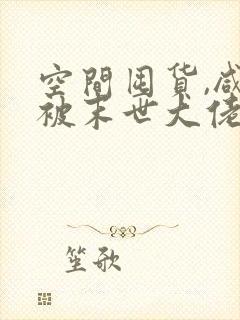 空間囤货,咸
被末世大佬
笙歌